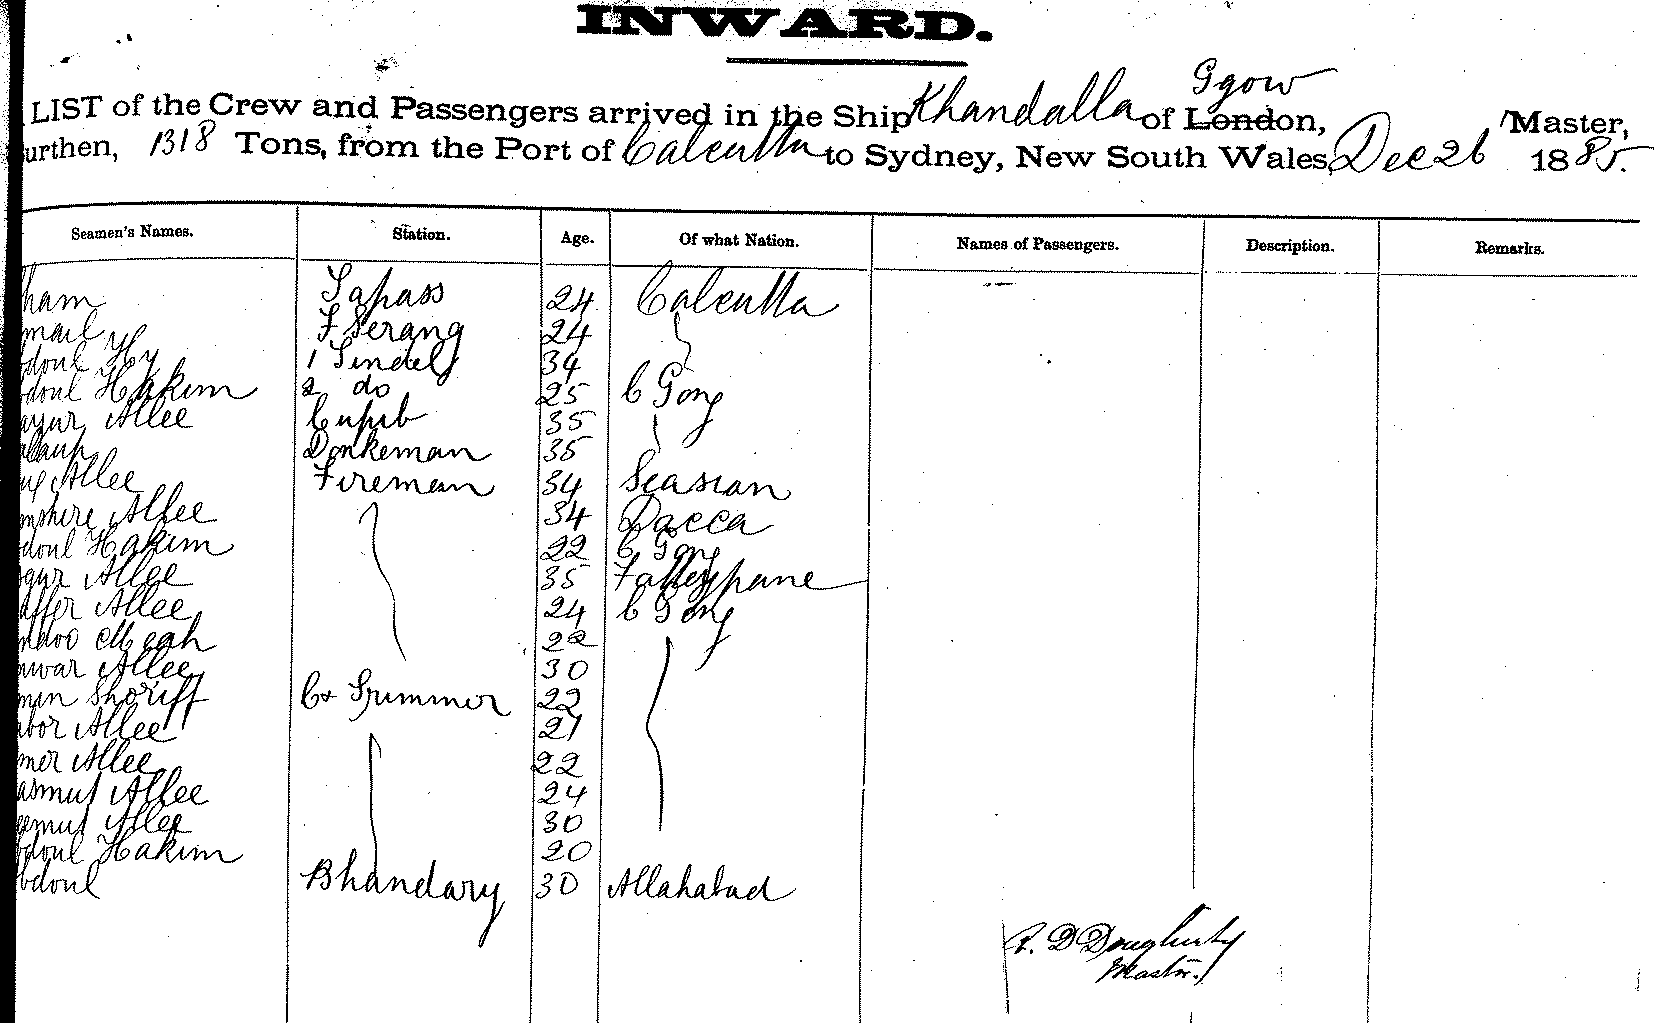 INWARD.
LIST of the Crew and Passengers arrived in the Ship Khandalla of London, Ggow Master,
urthen, 1318 Tons, from the Port of Calcutta to Sydney, New South Wales, Dec 26 1885.
Seamen's Names. Station. Age. Of what Nation. Names of Passengers. Description. Remarks.
ham Topass 24 Calcutta
mail F Serang 24
doul Hy 1 Tindel 34
doul Hakim 2 do 25 C Gong
Allee 35
Donkeman 35
Allee Fireman 34
mshire Allee 34 Dacca
doul Hakim 22 C Gong
gur Allee 35
affer Allee 24 C Gong
ndoo Meah 22
nwar Allee 30
min Shoriff Cx Trimmer 22
bor Allee 21
mer Allee 22
asmut Allee 24
emut Allee 30
doul Hakim 20
bdoul Bhandary 30 Allahabad
D Dougherty
Master.